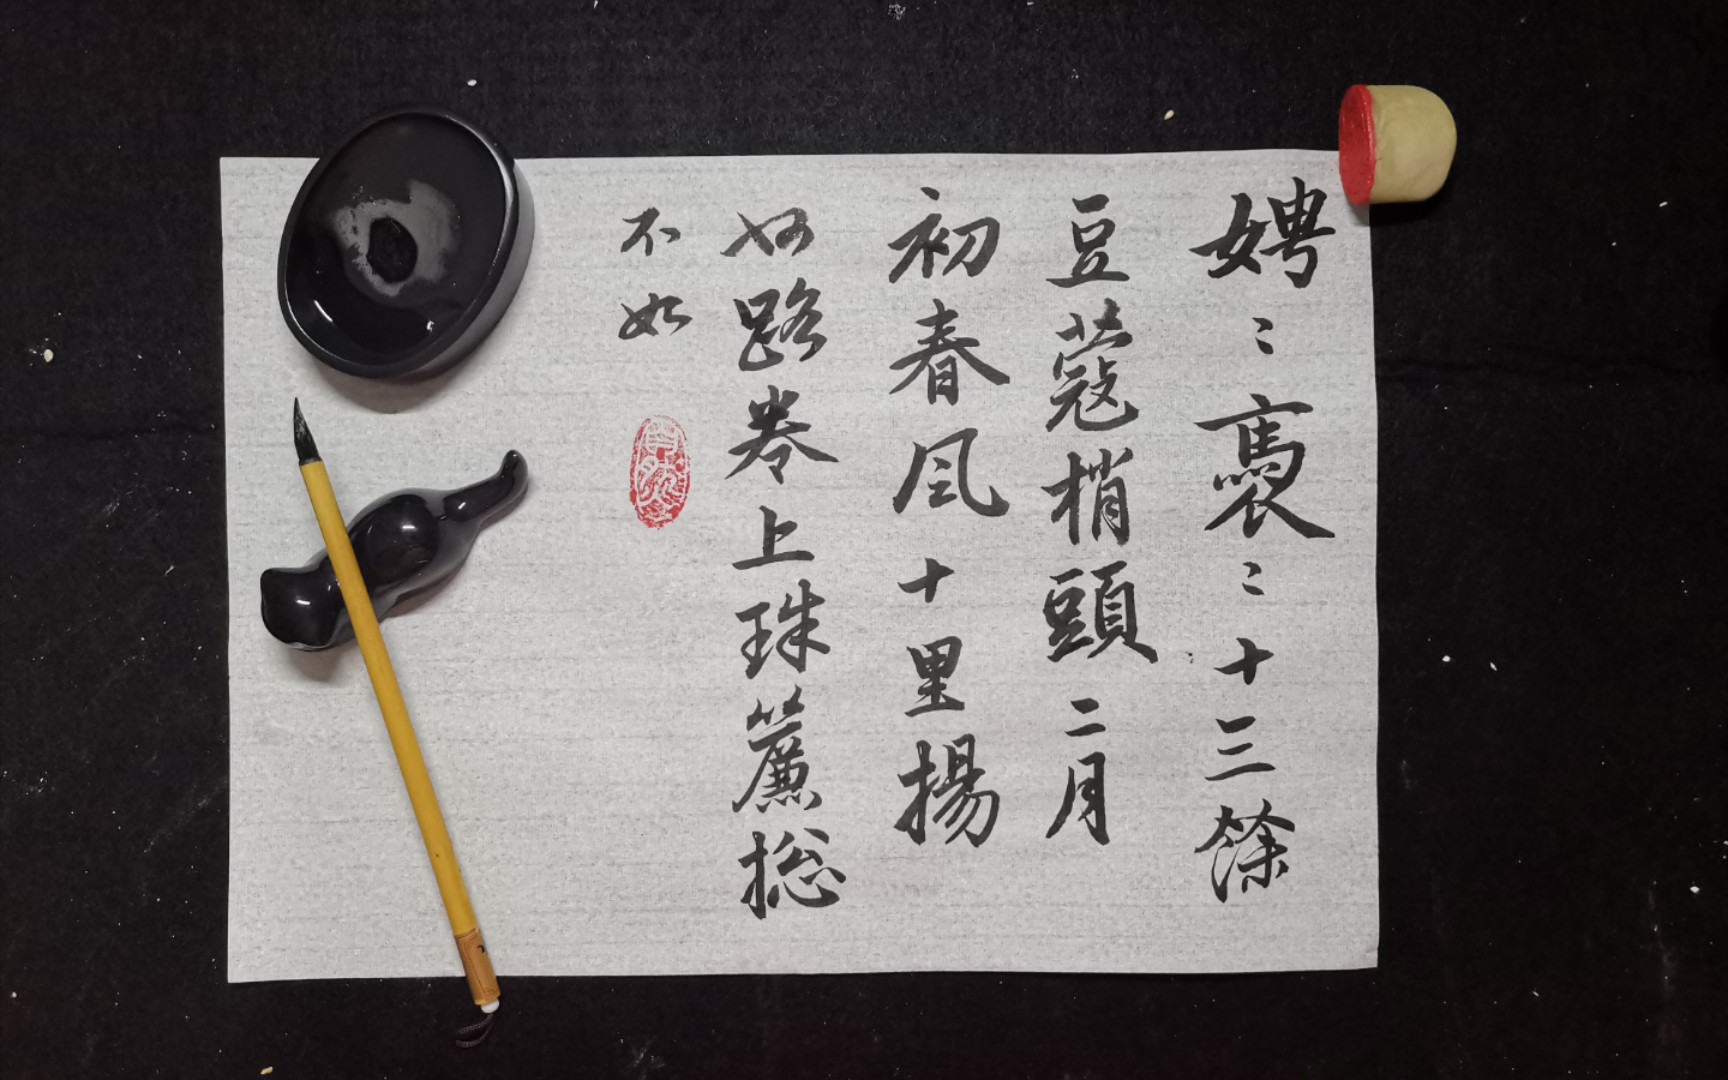 娉〻褭〻十三餘
豆蔻梢頭二月
初春風十里揚
州路卷上珠簾捴
不如